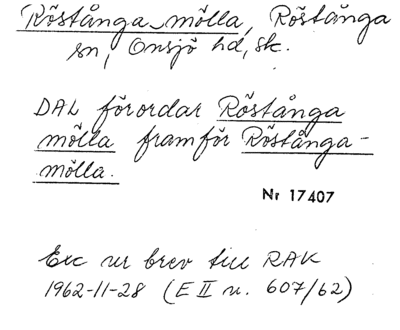 Röstånga mölla, Röstånga
sn, Onsjö hd, sk.
DAL förordar Röstånga
mölla framför Röstånga-
mölla.
Nr 17407
Exc ur brev till RAK
1962-11-28 (E II u. 607/62)